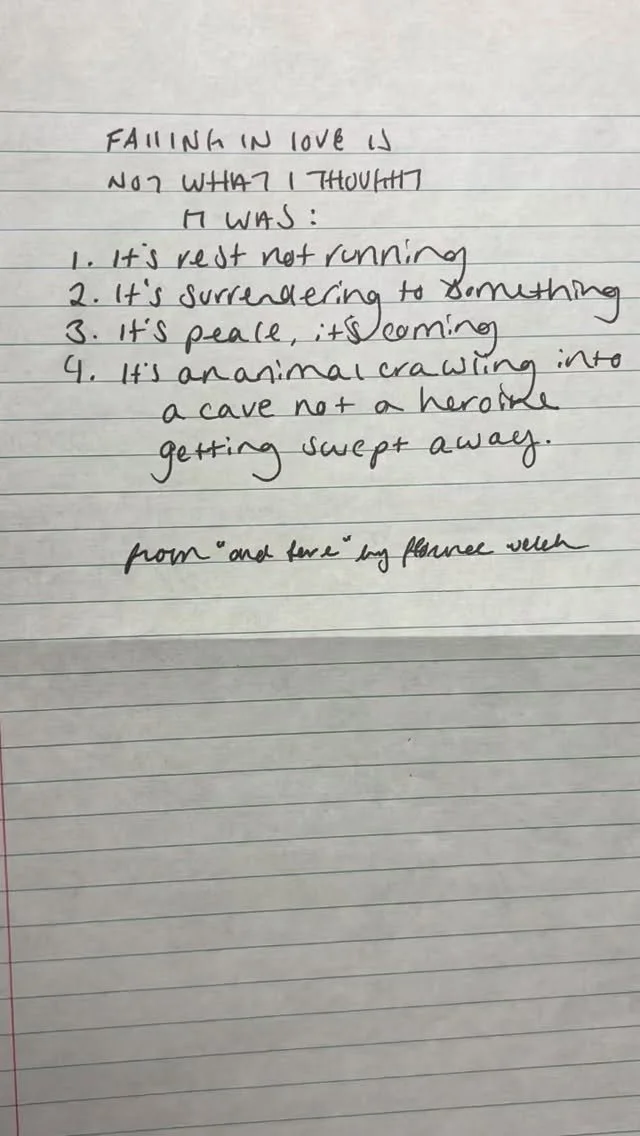 FAllING IN lOVE IS
NOT WHAT I THOUGHT
IT WAS:
1. It's rest not running
2. It's surrendering to something
3. It's peace, it's coming
4. It's an animal crawling into
a cave not a heroine
getting swept away.
from "and love" by florence welch